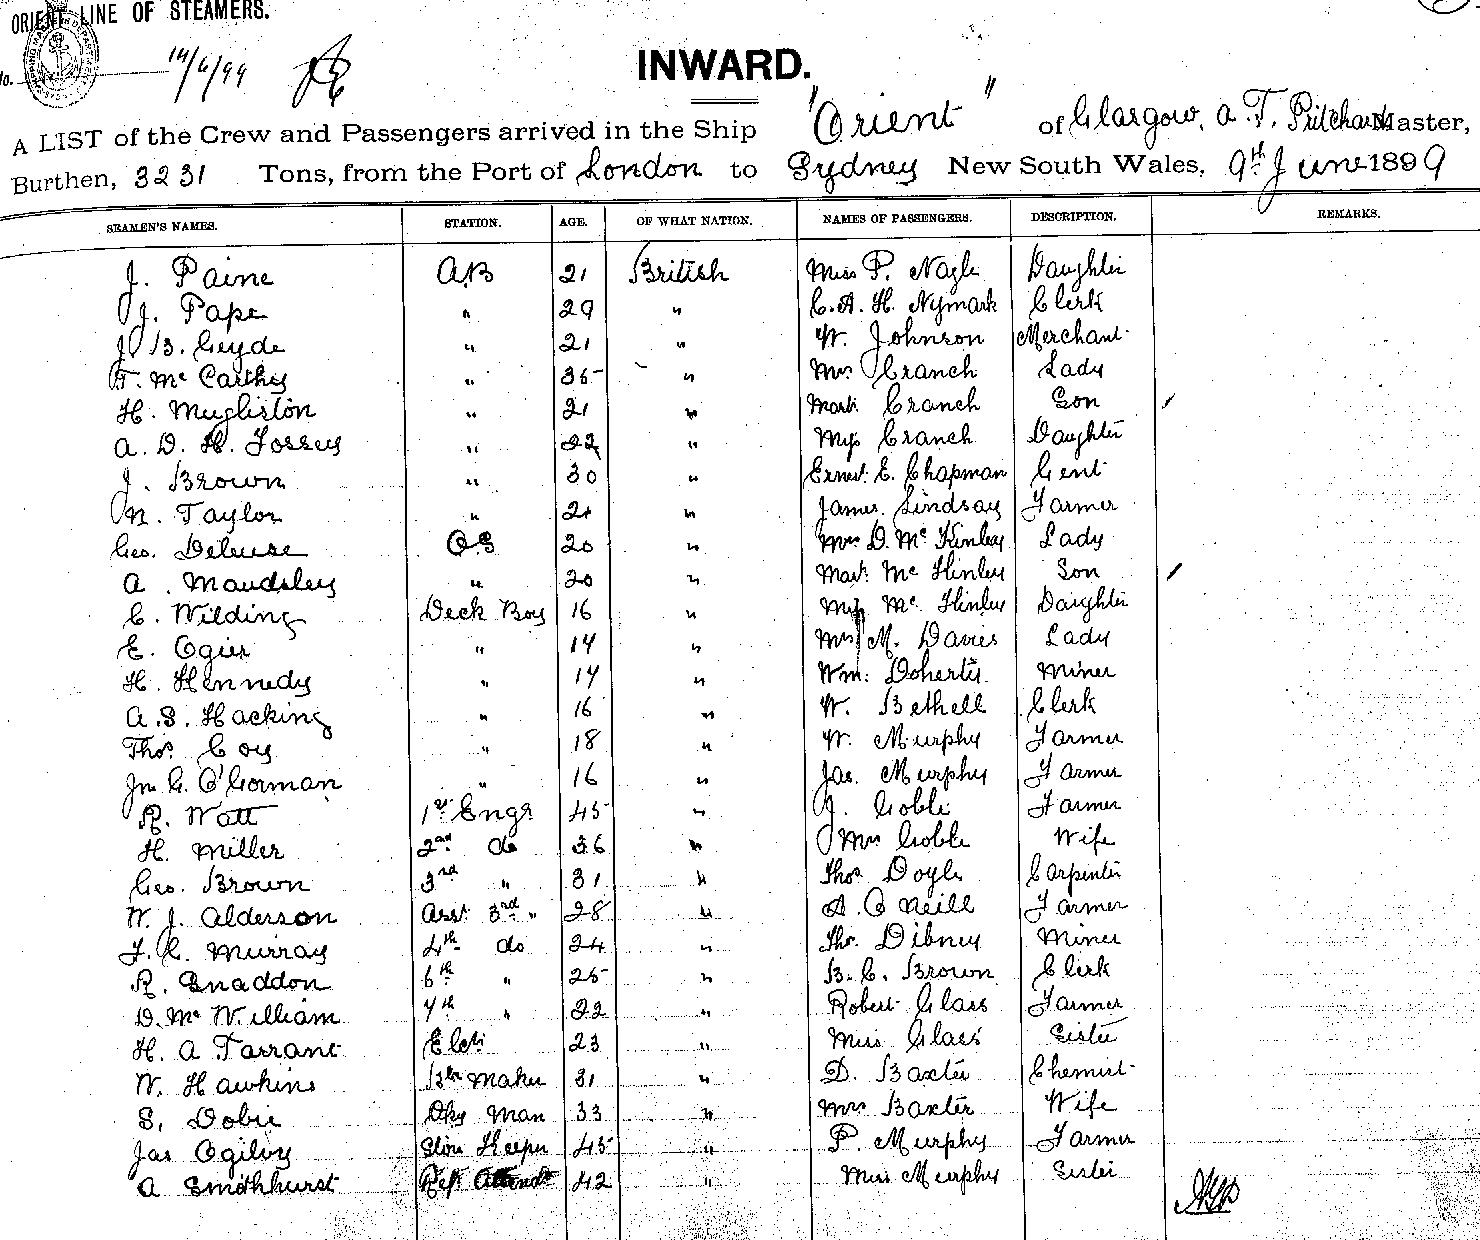 ORIENT LINE OF STEAMERS.
No. 14/6/99
INWARD.
A LIST of the Crew and Passengers arrived in the Ship "Orient" of Glasgow, A. T. Pritchard Master,
Burthen, 3231 Tons, from the Port of London to Sydney New South Wales, 9th June 1899
SEAMEN'S NAMES. STATION. AGE. OF WHAT NATION. NAMES OF PASSENGERS. DESCRIPTION. REMARKS.
J. Paine AB 21 British Miss P. Nagle Daughter
J. Pape " 29 " C. A. H. Nymark Clerk
J B. Geyde " 21 " W. Johnson Merchant
T. Mc Carthy " 35 " Mrs Cranch Lady
H. Mugliston " 21 " Mastr Cranch Son
A. D. H. Fossey " 22 " Miss Cranch Daughter
J. Brown " 30 " Ernest E. Chapman Gent
N. Taylor " 21 " James Lindsay Farmer
Geo. Deleuse OS 20 " Mrs D. Mc Kinley Lady
A. Maudsley " 20 " Mastr Mc Kinley Son
C. Wilding Deck Boy 16 " Miss Mc Kinley Daughter
E. Ogier " 14 " Mrs M. Davies Lady
H. Kennedy " 14 " Wm. Doherty Miner
A. S. Hacking " 16 " W. Bethell Clerk
Thos Coy " 18 " W. Murphy Farmer
Jn G. O'Gorman " 16 " Jas. Murphy Farmer
R. Watt 1st Engr 45 " J. Goble Farmer
H. Miller 2nd do 36 " Mrs Goble Wife
Geo. Brown 3rd " 31 " Thos Doyle Carpenter
W. J. Alderson Asst 3rd " 28 " A. O Neill Farmer
F. C. Murray 4th do 24 " Thos. Dibney Miner
R. Snaddon 6th " 25 " B. C. Brown Clerk
D. Mc William 7th " 22 " Robert Glass Farmer
H. A Tarrant Elctn 23 " Miss Glass Sister
W. Hawkins Blr Maker 31 " D. Baxter Chemist
S. Dobie Dky Man 33 " Mrs Baxter Wife
Jas Ogilvy Store Keeper 45 " P. Murphy Farmer
A Smithhurst Ref Attendt 42 " Miss Murphy Sister